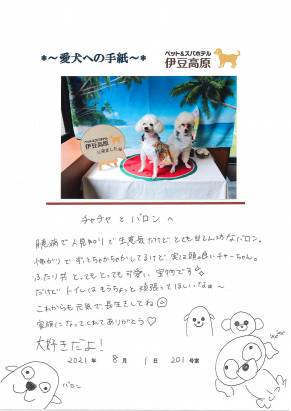 *~愛犬への手紙~*
ペット&スパホテル
伊豆高原
ペット&スパホテル
伊豆高原
に来ました
チャチャとバロンへ
臆病で人見知りで生意気だけどとても甘えん坊なバロン。
怖がりでずっとちょかちょかしてるけど実は頭の良いチャーちゃん。
ふたり共とってもとっても可愛い宝物です
だけどトイレはもうちょっと頑張ってほしいなぁ〜
これからも元気で長生きしてね
家族になってくれてありがとう♡
大好きだよ!
2021年 8月 1日 201号室
バロン